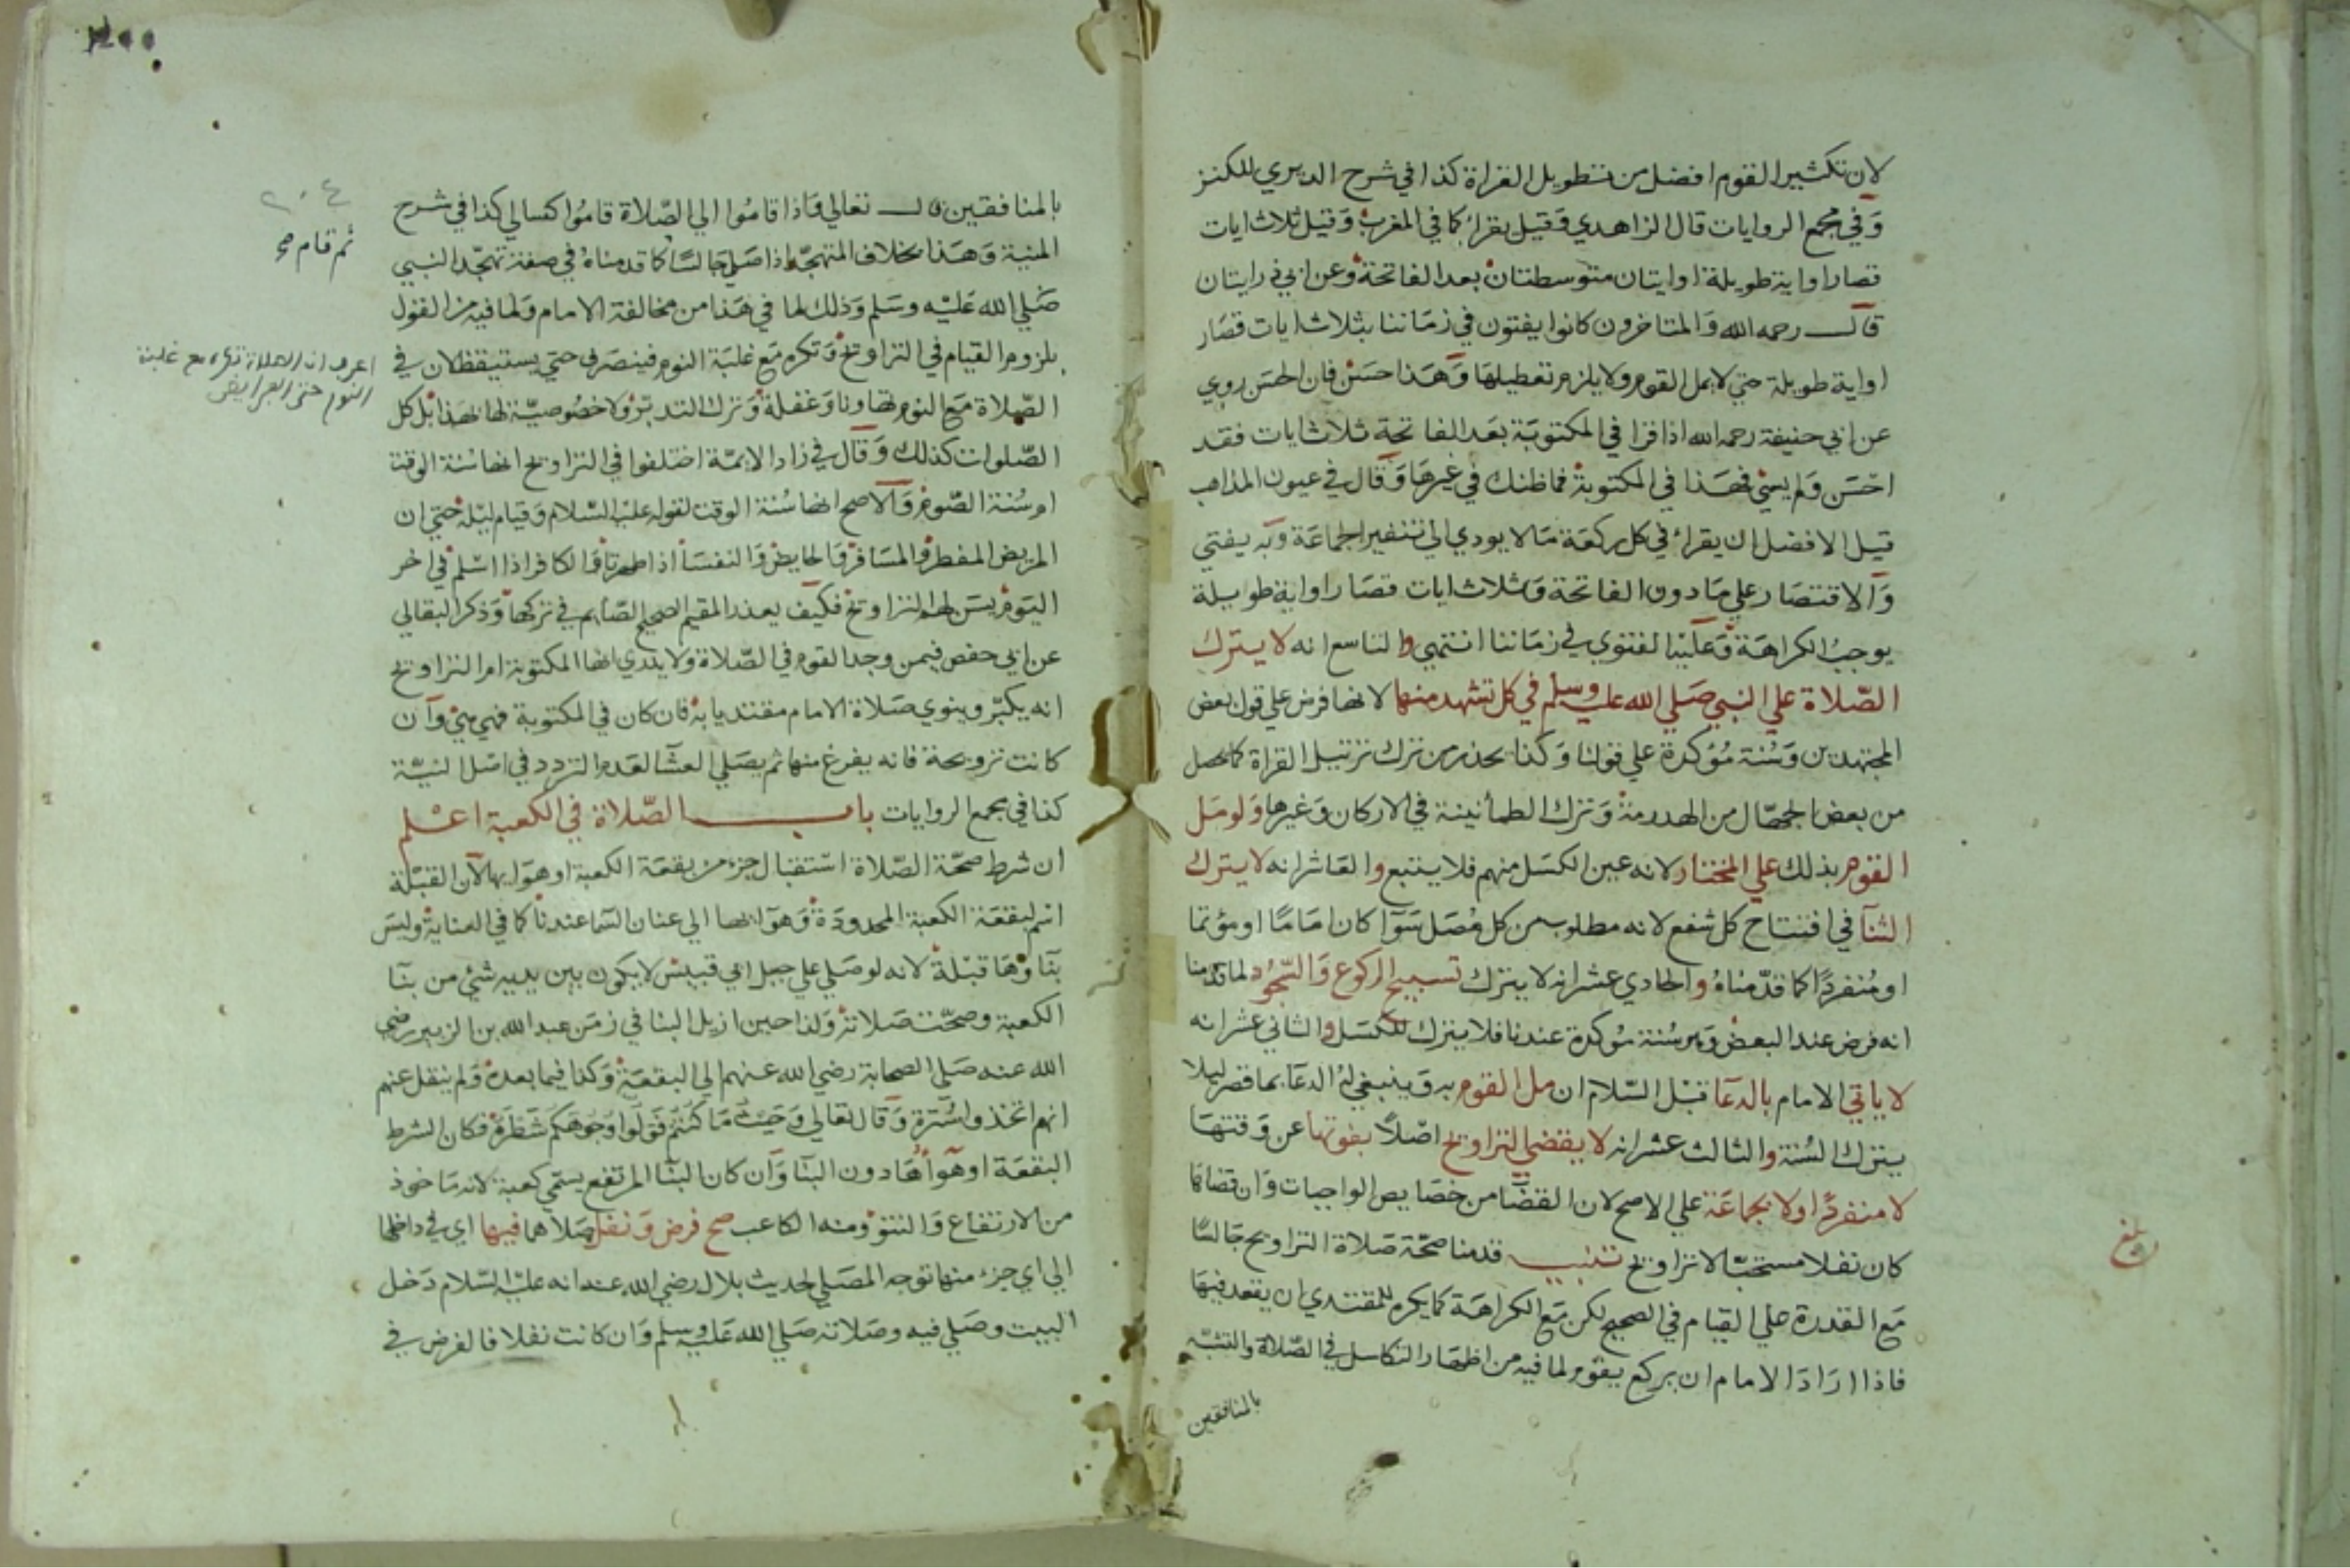 لان تكثير القوم افضل من تطويل القراة كذا في شرح الديري للكنز
وَفي مجمع الروايات قال الزاهدي وَقيل يقراء كما في المغرب وَقيل ثلاث ايات
قصار او اية طويلة او ايتان متوسطتان بعد الفاتحة وعن ابي ذر ايتان
قال رحمه الله وَالمتاخرون كانوا يفتون في زماننا بثلاث ايات قصار
او اية طويلة حتي لا يمل القوم ولا يلزم تعطيلها وَهَذا حسَن فان الحسَن روي
عن ابي حنيفة رحمه الله اذا قرا في المكتوبَة بعَد الفاتحة ثلاث ايات فقد
احْسَن وَلم يسئ فهَذا في المكتوبة فما ظنك في غيرهَا وَقال في عيون المذاهب
قيل الافضل ان يقراء في كل ركعَة مَا لا يودي الي تنفير الجماعَة وَبه يفتي
وَالاقتصَار علي مَا دون الفاتحة وَثلاث ايات قصَار او اية طويلة
يوجب الكراهَة وَعليه الفتوي في زمَاننا انتهي والتاسع انه لا يترك
الصّلاة علي النبي صَلي الله عليه وسلم في كل تشهد منها لانها فرض علي قول بعض
المجتهدين وَسُنة مُؤكدة علي قولنا وَكذا يحذر من ترك ترتيل القراة كما يحصل
من بعض الجهّال من الهدرمة وَترك الطمأنينة في الاركان وَغيرها وَلو مَل
القوم بذلك علي المختار لانه عين الكسَل منهم فلا يتبع والعَاشر انه لا يترك
الثنآ في افتتاح كل شفع لانه مطلوب من كل مُصَل سَوَآ كان امَامًا او مؤتما
او مُنفردًا كما قدّمْناهُ والحادي عشر انه لا يترك تسبيح الركوع وَالسّجُود لما قدمنا
انه فرض عند البعض وَمرسُنة مُؤكدة عندنا فلا يترك للكسَل والثاني عشر انه
لا ياتي الامام بالدعَا قبْل السّلام ان مل القوم به وَينبغي لهُ الدعَا بما قصر ليلا
يترك السُنة والثالث عشر انه لا يقضي التراويح اصْلاً بفوتها عن وَقتهَا
لا منفردًا ولا بجماعَة علي الاصح لان القضَا من خصَايص الواجبات وَان قضاها
كان نفلا مستحبّا لا تراويح تنبيه قدمنا صحّة صَلاة التراويح جَالسًا
مَع القدرة علي القيام في الصحيح لكن مَع الكراهَة كما يكره للمقتدي ان يقعد فيهَا
فاذا ارَادَ الامام ان يركع يقوم لما فيه من اظهَار التكاسل في الصّلاة والتشبّه
بالمنافقين
بلغ
بالمنافقين قال تعَالي وَاذا قامُوا الي الصّلاة قامُوا كسالي كذا في شرح
المنية وَهَذا بخلاف المتهجّد اذا صَلي جَالسًا كما قدمناهُ في صفة تهجّد النبي
صَلي الله عَليْه وسَلم وَذلك لما في هَذا من مخالفة الامام وَلما فيه من القول
بلزوم القيام في التراويح وَتكره مَع غلبَة النوم فينصَرف حتي يستيقظ لان في
الصّلاة مَع النوم تهَاونا وَغفلة وَترك التدبّر ولا خصُوصيّة لها بهَذا بْل كل
الصّلوات كذلك وَقال في زاد الايمّة اختلفوا في التراويح انها سُنة الوقت
ام سُنة الصّوم وَالاصح انها سُنة الوقت لقوله عليه السّلام وَقيام ليْله حتي ان
المريض المفطر وَالمسَافر وَالحايض وَالنفسَا اذا طهرتا وَالكافر اذا اسْلم في اخر
اليَوم يسَن لهم التراويح فكيْف يعذر المقيم الصحيح الصّايم في تركها وَذكر البقالي
عن ابي حفص فيمن وجد القوم في الصّلاة ولا يدري انها المكتوبة ام التراويح
انه يكبّر وينوي صَلاة الامام مقتديا به فان كان في المكتوبة فهي هيَ وَان
كانت ترويحة فانه يفرغ منها ثم يصَلي العشآ لعَدم التردد في اصْل النيّة
كذا في مجمع الروايات باب الصّلاة في الكعبة اعْلم
ان شرط صحّة الصّلاة اسْتقبال جزء من بقعَة الكعبة او هوَايها لان القبْلة
اسْم لبقعَة الكعبة المحدودَة وَهوَائها الي عنان السّما عندنا كما في العناية وليسَ
بنَآوهَا قبْلة لانه لو صَلي علي جبل ابي قبيس لا يكون بين يديه شيْ من بنآ
الكعبة وصحّت صَلاته وَلذا حين ازيل البنا في زمَن عبد الله بن الزبير رضي
الله عنه صَلي الصحابة رضي الله عنهم الي البقعَة وَكذا فيما بعده وَلم ينقل عنهم
انهم اتخذوا سُترة وَقال تعَالي وَحَيْث مَا كنتُمْ فَوَلّوا وُجُوهَكم شَطْرَهُ فكان الشرط
البقعَة او هوَآهَا دون البنَآ وَان كان البنآ المرتفع يسَمّي كعبة لانه مَاخوذ
من الارتفاع وَالنتوّ ومنه الكاعب صح فرض وَنفل صَلاهما فيها اي في داخلها
الي اي جزء منها توجه المصَلي لحديث بلال رضي الله عنه انه عليه السّلام دَخل
البيت وصَلي فيه وصَلاته صَلي الله عَليه وسلم وَان كانت نفلا فالفرض في
٢٠٤
ثم قام صح